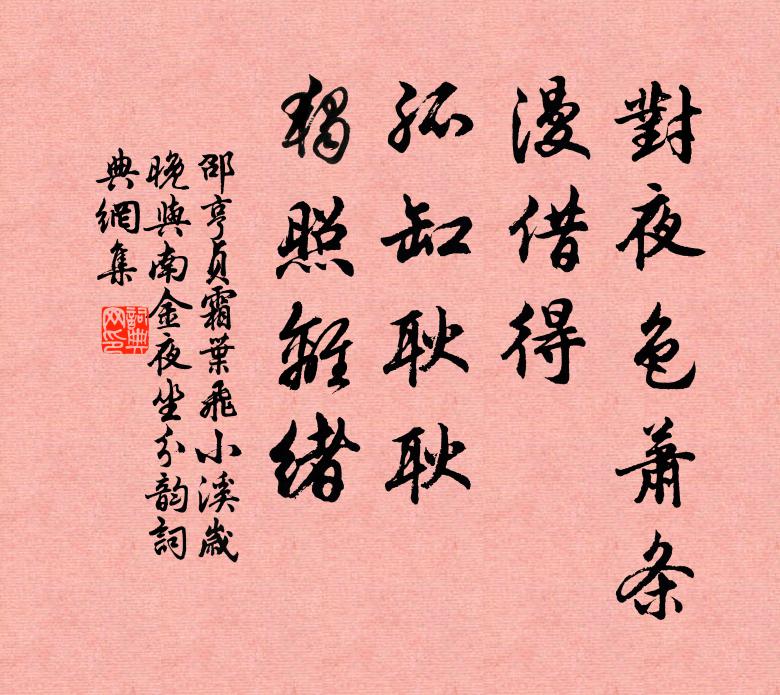 對夜色萧条
漫借得
孤缸耿耿
独照離绪
邵亨貞霜葉飛小溪歲
晚與南金夜坐分韵詞
典網集
詞典
网印